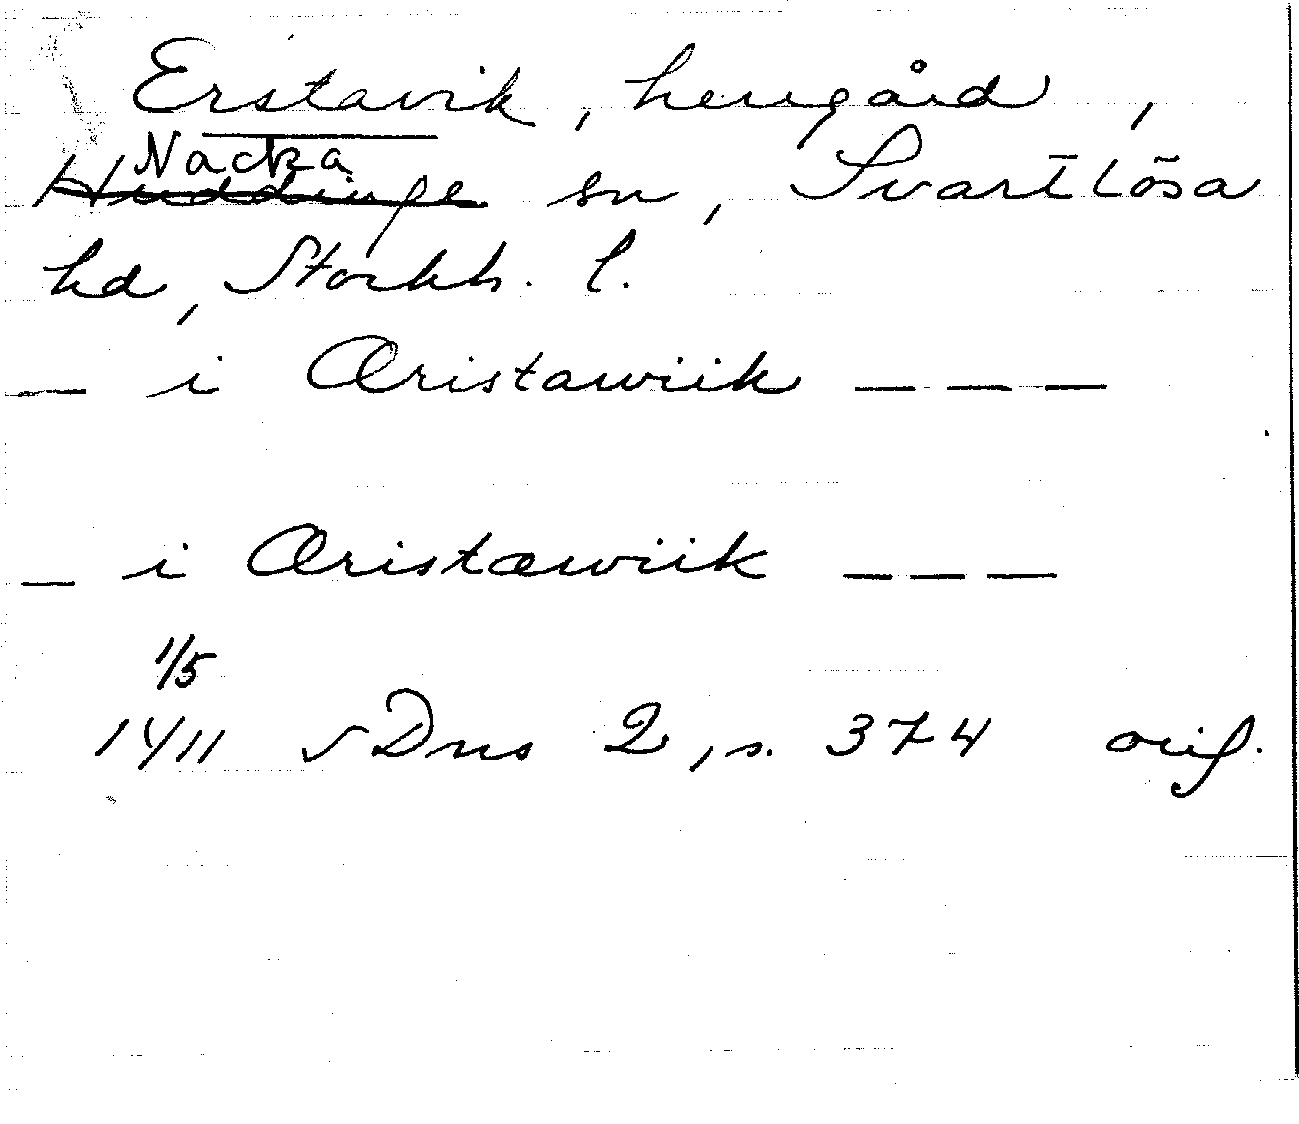 Erstavik, herrgård,
Nacka
Huddinge sn, Svartlösa
hd, Stockh. l.
— i Æristawiik — — —
— i Æristæwiik — — —
1/5
1411 SDns 2, s. 374 orig.